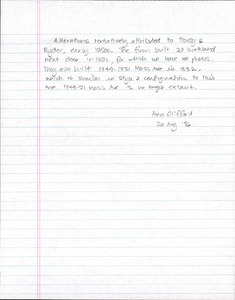 Alterations tentatively attributed to Povey &
Ryder, early 1850s. The firm built 29 Kirkland
next door in 1852, for which we have no photos.
They also built 1749-1751 Mass Ave in 1852,
which is similar in style & configuration to this
one. 1749-51 Mass Ave is no longer extant.
Ann Clifford
20 Aug '96